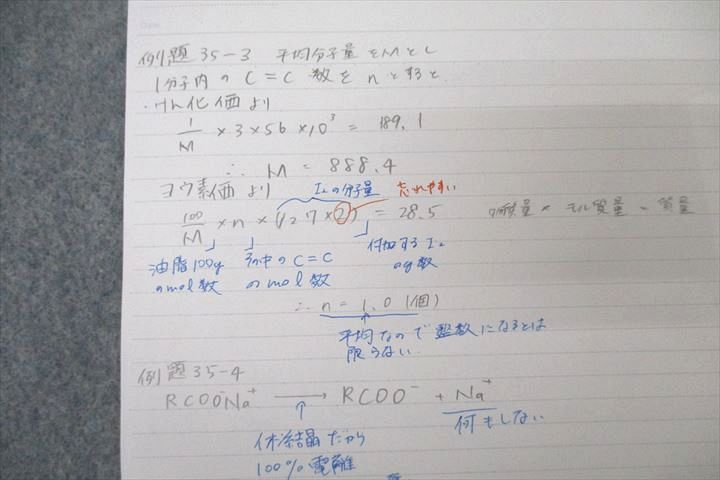 Date
例題35-3 平均分子量をMとし
1分子内のC=C数をnとすると
・けん化価より
1/M × 3 × 56 × 10³ = 189.1
∴ M = 888.4
ヨウ素価より I₂の分子量 忘れやすい
100/M × n × (127 × 2) = 28.5 質量 × モル質量 = 質量
油脂100g その中のC=C 付加するI₂
のmol数 のmol数 のg数
∴ n = 1.0 (個)
平均なので整数になるとは
限らない
例題35-4
RCOO⁻Na⁺ → RCOO⁻ + Na⁺
結晶だから 何もしない
100%電離